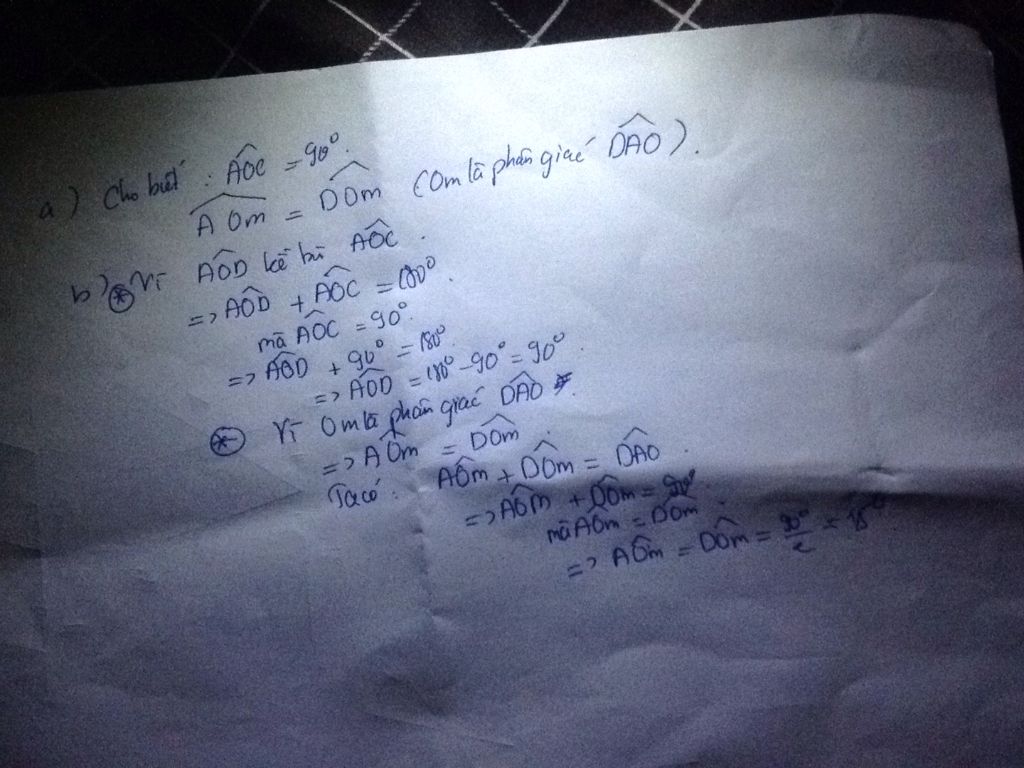 a) Cho biết : AÔC = 90°.
AÔm = DÔm (Om là phân giác DÂO).
b) * Vì AÔD kề bù AÔC.
=> AÔD + AÔC = 180°.
mà AÔC = 90°.
=> AÔD + 90° = 180°
=> AÔD = 180° - 90° = 90°.
* Vì Om là phân giác DÂO.
=> AÔm = DÔm.
Ta có: AÔm + DÔm = DÂO.
=> AÔm + DÔm = 90°.
mà AÔm = DÔm.
=> AÔm = DÔm = 90°/2 =